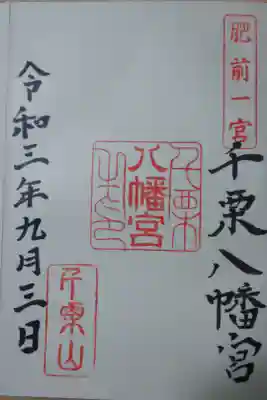 肥前一宮
千栗八幡宮
千栗
八幡宮
千栗山
令和三年九月三日